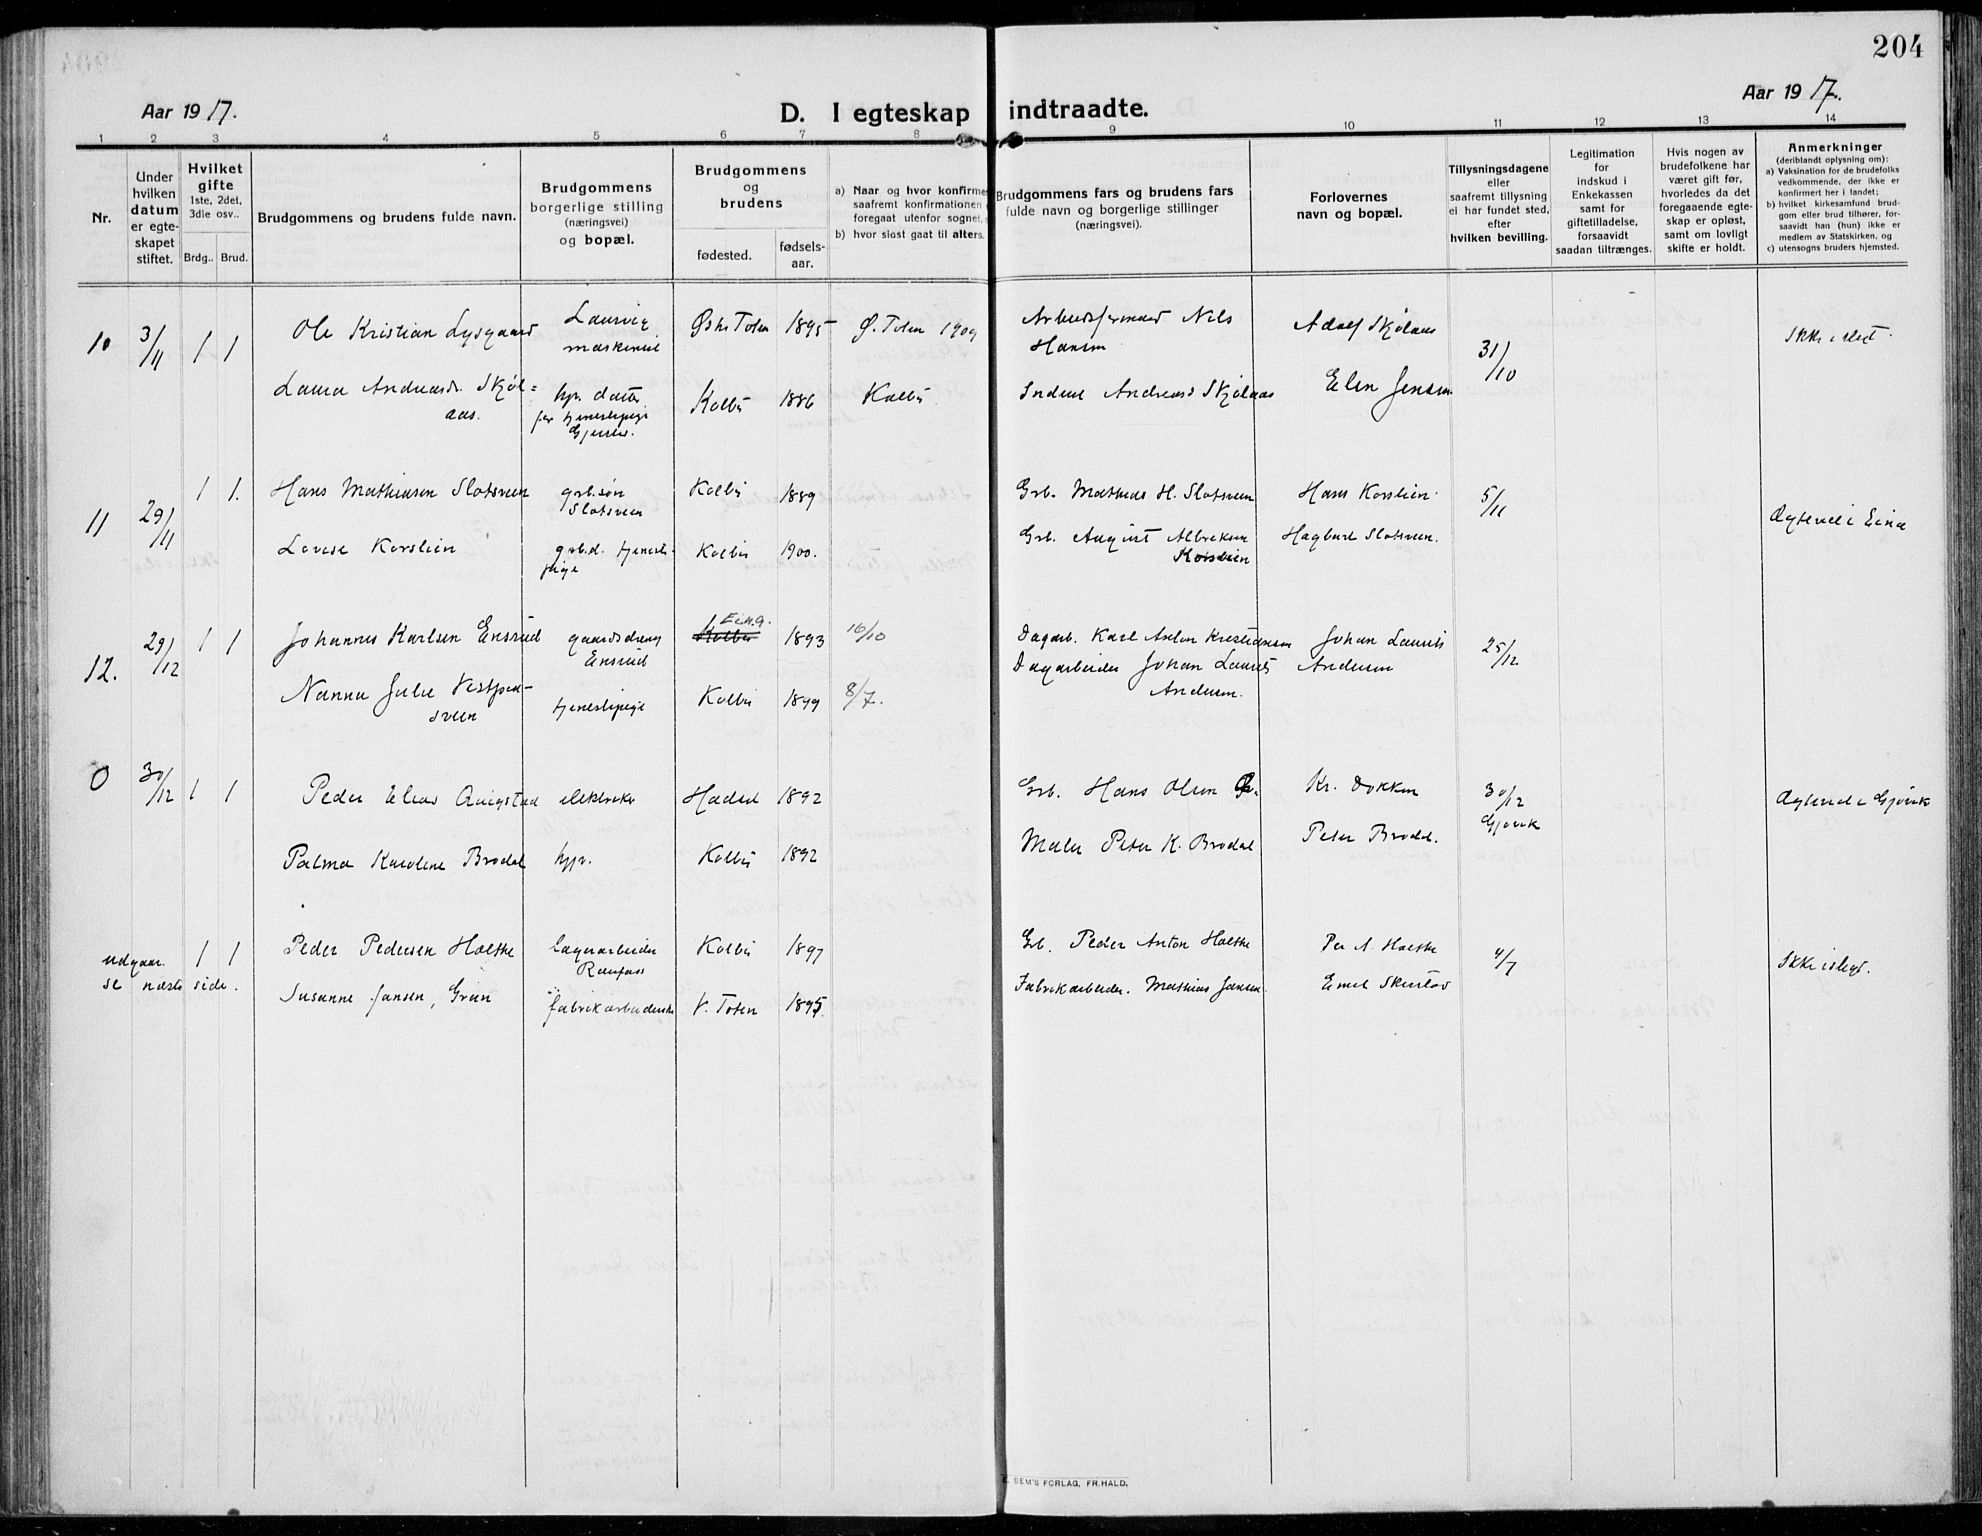 204
Aar 1917.
D. I egteskap indtraadte.
Aar 1917.
1 2 3 4 5 6 7 8 9 10 11 12 13 14
Nr.
Under
hvilken
datum
er egte-
skapet
stiftet.
Hvilket
gifte
1ste, 2det,
3die osv..
Brdg.. Brud.
Brudgommens og brudens fulde navn.
Brudgommens
borgerlige stilling
(næringsvei)
og bopæl.
Brudgommens
og
brudens
fødested.
fødsels-
aar.
a) Naar og hvor konfirme
saafremt konfirmationen
foregaat utenfor sognet,
b) hvor sidst gaat til alters.
Brudgommens fars og brudens fars
fulde navn og borgerlige stillinger
(næringsvei).
Forlovernes
navn og bopæl.
Tillysningsdagene
eller
saafremt tillysning
ei har fundet sted,
efter
hvilken bevilling.
Legitimation
for
indskud i
Enkekassen
samt for
giftetilladelse,
forsaavidt
saadan tiltrænges.
Hvis nogen av
brudefolkene har
været gift før,
hvorledes da det
foregaaende egte-
skap er opløst,
samt om lovligt
skifte er holdt.
Anmerkninger
(deriblandt oplysning om):
a) Vaksination for de brudefolks
vedkommende, der ikke er
konfirmert her i landet;
b) hvilket kirkesamfund brud-
gom eller brud tilhører, for-
saavidt han (hun) ikke er
medlem av Statskirken, og
c) utensogns bruders hjemsted.
10 3/11 1 1 Ole Kristian Lysgaard
Østre Toten 1895 Ø. Toten 1909
Nils
Hansen
Adolf Skjølaas
31/10
Laura Andreasdr. Skjøl=
aas.
Kolbu 1886 Kolbu
Andreas Skjølaas
Elen Jensen
11 29/11 1 1. Hans Mathiasen Slotsveen
grb.søn
Slotsveen
Kolbu 1889
Grb. Mathias H. Slotsveen
Hans Korslien.
5/11
Lovise Korslien
grb.d. tjeneste-
pige
Kolbu 1900.
Grb. August Albreksen
Korslien
Hagbart Slotsveen.
12. 29/12 1 1 Johannes Karlsen Ensrud
gaardsdreng
Ensrud
Eina.
Kolbu
1893 16/10
Dagarb. Karl Anton Kristiansen
Johan Laurits
25/12
Dagarbeider Johan Laurits
Andersen.
Andersen
Nanna Julie
sveen
tjenestepige
Kolbu 1899 8/7.
0 30/12 1 1 Peder
1892
Grb. Hans Olsen
Kr. Dokken
30/12
Gjøvik
Palma Karoline Brodal
Kolbu 1892
Maler Peter K. Brodal
Peter Brodal.
udgaar.
se næste side.
1 1 Peder Pedersen Holthe
Lagerarbeider
Raufoss
Kolbu 1897
Grb. Peder Anton Holthe
Per A. Holthe
4/7
Susanne Jansen, Grøn
fabrikarbeiderske
V. Toten 1895.
Fabrikarbeider. Mathias Jansen.
SEM'S FORLAG, FR.HALD.